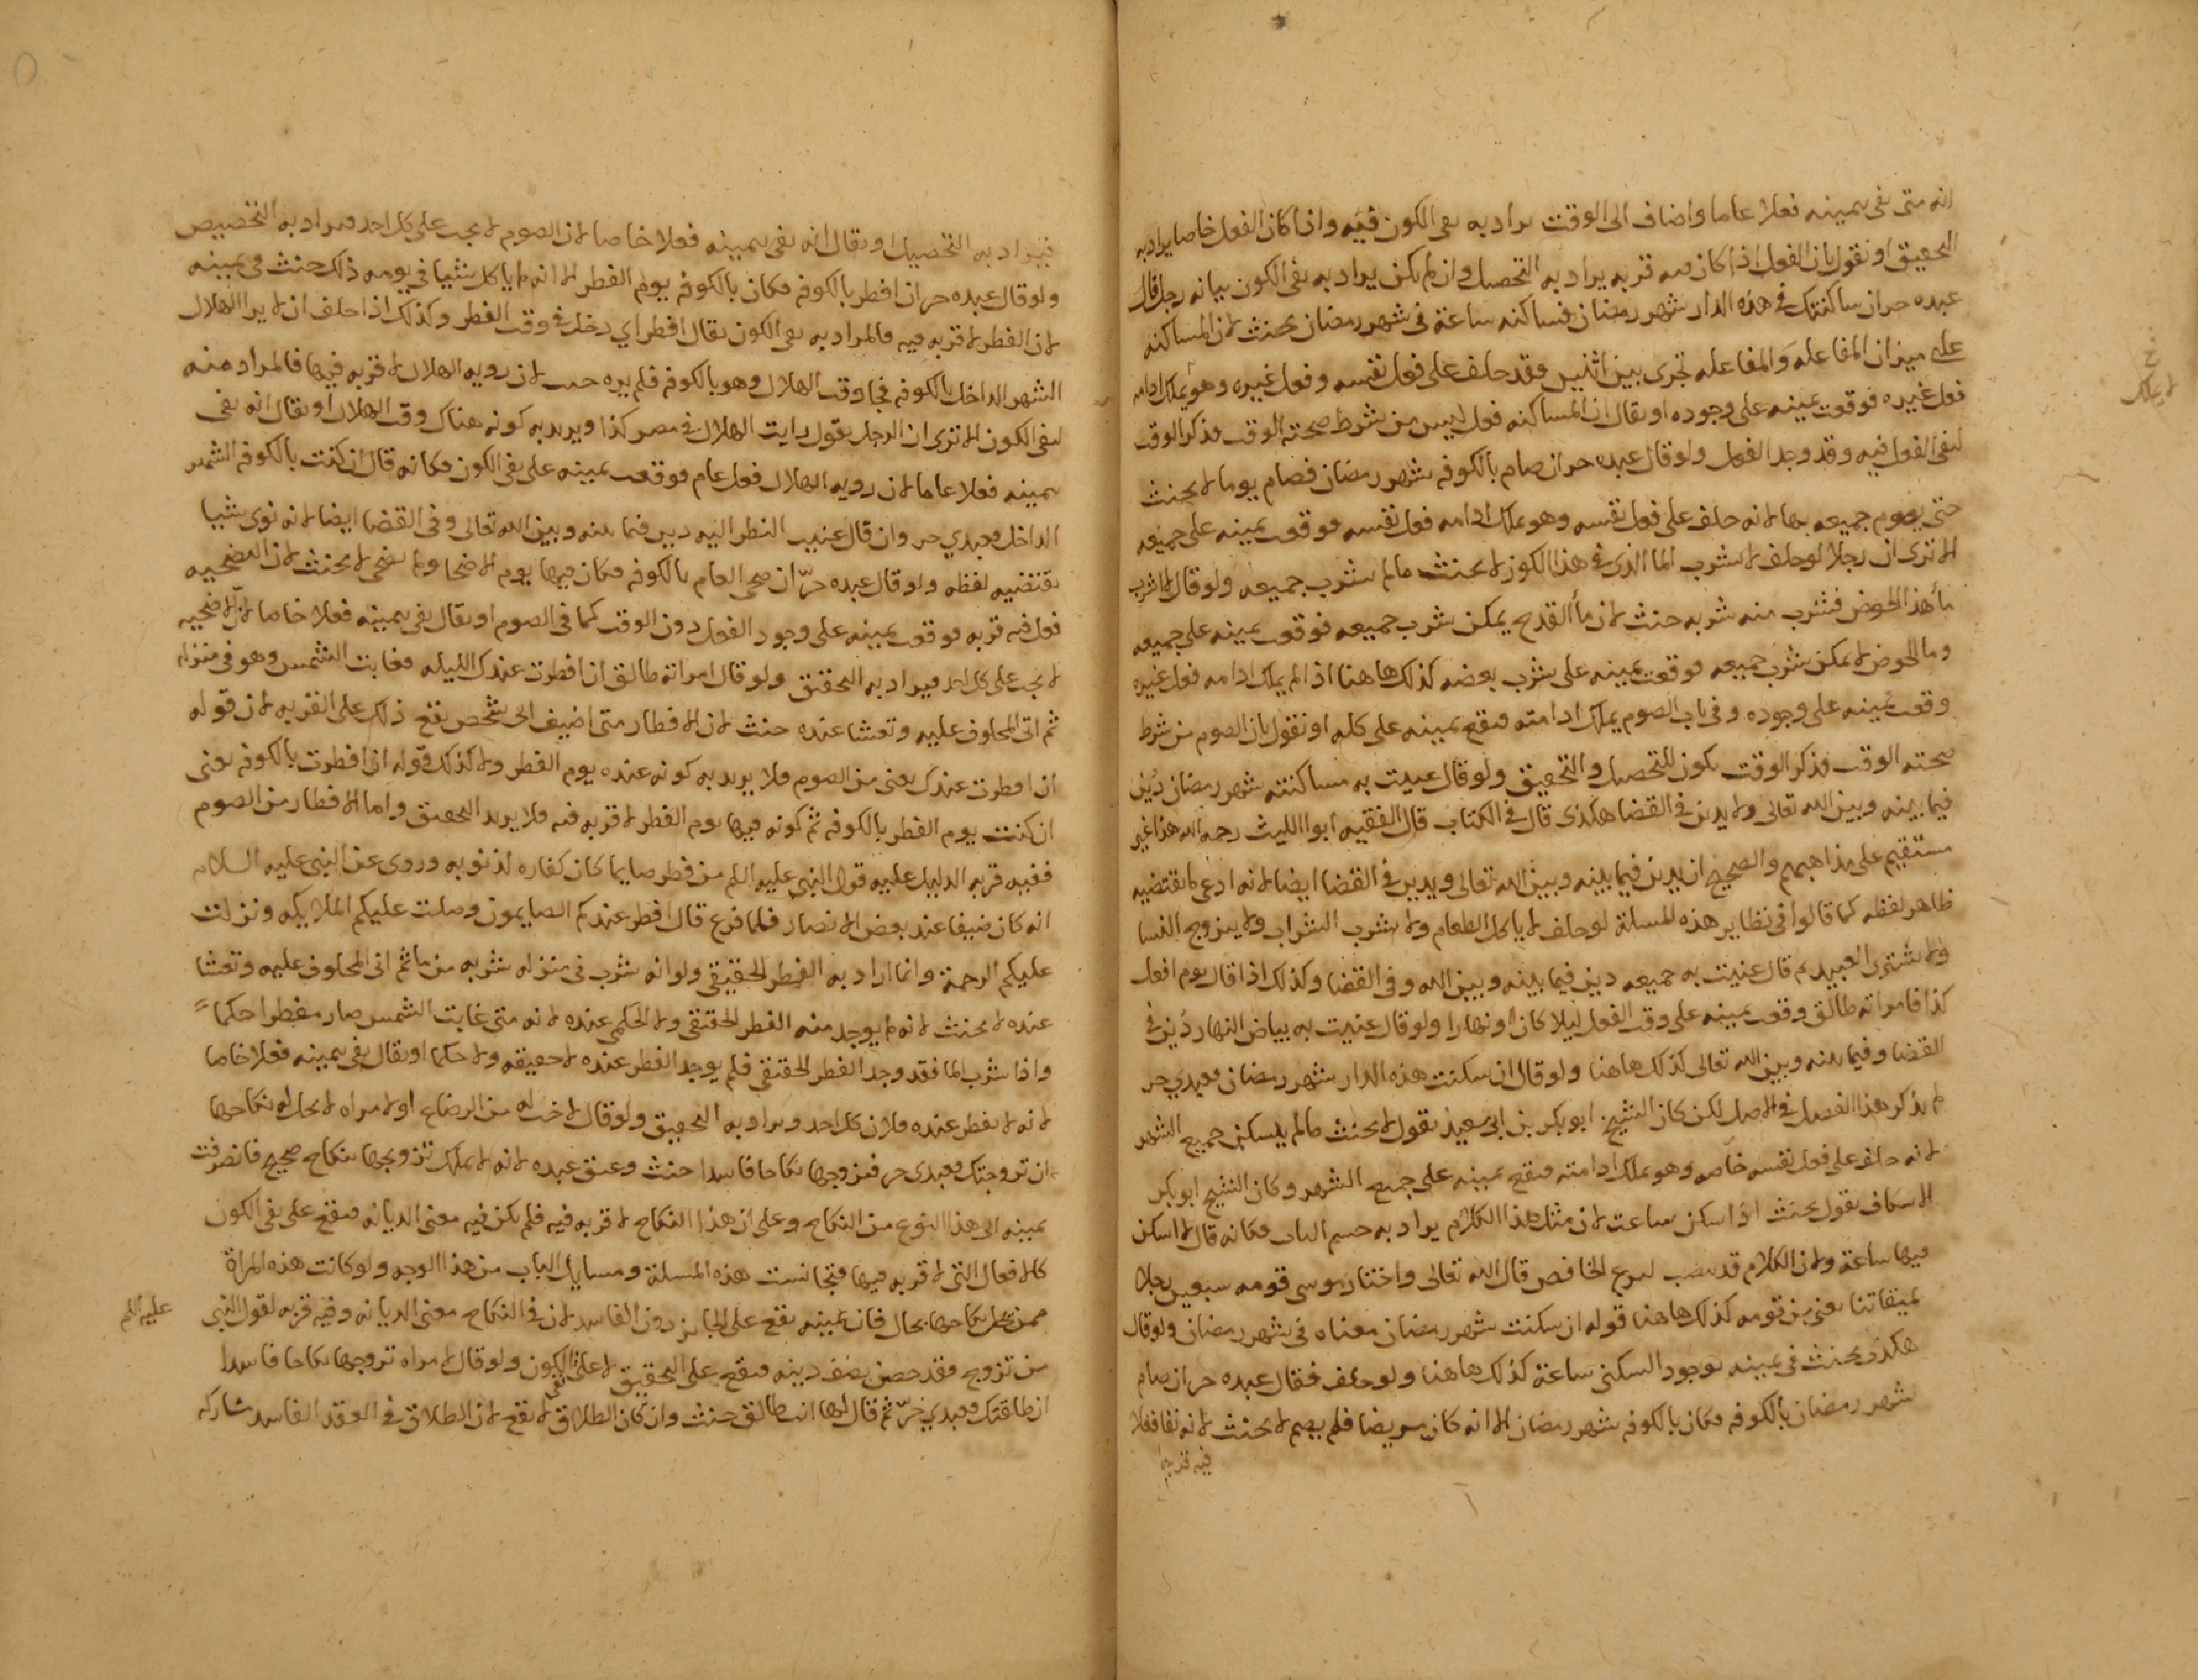 انه متى نفى بيمينه فعلا عاما واضاف الى الوقت يراد به نفى الكون فيه واذا كان الفعل خاصا يراد به
التحقيق او نقول بان الفعل اذا كان فيه قربه يراد به التحصيل وان لم يكن يراد به نفى الكون بيانه رجل قال
عبده حر ان ساكنتك فى هذه الدار شهر رمضان فساكنه ساعة فى شهر رمضان يحنث لان المساكنه
على ميزان المفاعله والمفاعله تجرى بين اثنين وقد حلف على فعل نفسه وفعل غيره وهو يملك ادامه
لا يملك
فعل غيره فوقعت يمينه على وجوده او يقال ان المساكنه فعل ليس من شرط صحته الوقت فذكر الوقت
لنفى الفعل فيه وقد وجد الفعل ولو قال عبده حر ان صام بالكوفه شهر رمضان فصام يوما لا يحنث
حتى يصوم جميعه بها لانه حلف على فعل نفسه وهو يملك ادامه فعل نفسه فوقعت يمينه على جميعه
الا ترى ان رجلا لو حلف لا يشرب الما الذى فى هذا الكوز لا يحنث مالم يشرب جميعه ولو قال لا اشرب
ماء هذا الحوض فشرب منه شربه حنث لان ماء القدح يمكن شرب جميعه فوقعت يمينه على جميعه
وما الحوض لا يمكن شرب جميعه فوقعت يمينه على شرب بعضه كذلك هاهنا اذا لم يملك ادامه فعل غيره
وقعت يمينه على وجوده وفى باب الصوم يملك ادامته فيقع يمينه على كله او نقول بان الصوم من شرط
صحته الوقت فذكر الوقت يكون للتحصيل والتحقيق ولو قال عنيت به مساكنته شهر رمضان دين
فيما بينه وبين الله تعالى ولا يدين فى القضا هكذى قال فى الكتاب قال الفقيه ابوا الليث رحمه الله هذا غير
مستقيم على مذاهبهم والصحيح ان يدين فيما بينه وبين الله تعالى ويدين فى القضا ايضا لانه ادعى ما يقتضيه
ظاهر لفظه كما قالوا فى نظاير هذه المسلة لو حلف لا ياكل الطعام ولا يشرب الشراب ولا يتزوج النسا
ولا يشترى العبيد ثم قال عنيت به جميعه دين فيما بينه وبين الله وفى القضا وكذلك اذا قال يوم افعل
كذا فامراته طالق وقعت يمينه على وقت الفعل ليلا كان او نهارا ولو قال عنيت به بياض النهار دين فى
القضا وفيما بينه وبين الله تعالى كذلك هاهنا ولو قال ان سكنت هذه الدار شهر رمضان فعبدي حر
لم يذكر هذا الفصل فى الاصل لكن كان الشيخ ابو بكر بن ابى سعيد يقول لا يحنث مالم يسكن جميع الشهر
لانه حلف على فعل نفسه خاصه وهو يملك ادامته فيقع يمينه على جميع الشهر وكان الشيخ ابو بكر
الاسكاف يقول يحنث اذا سكن ساعت لان مثل هذا الكلام يراد به حسم الباب فكانه قال لا اسكن
فيها ساعة ولان الكلام قد ينصب لنزع الخافض قال الله تعالى واختار موسى قومه سبعين رجلا
لميقاتنا يعنى من قومه كذلك هاهنا قوله ان سكنت شهر رمضان معناه فى شهر رمضان ولو قال
هكذى يحنث فى يمينه بوجود السكنى ساعة كذلك هاهنا ولو حلف فقال عبده حر ان صام
شهر رمضان بالكوفه فكان بالكوفه شهر رمضان الا انه كان مريضا فلم يصم لا يحنث لانه نفا فعلا
فيه قربه
فيراد به التحصيل او يقال انه نفى بيمينه فعلا خاصا لان الصوم لا يجب على كل احد فيراد به التخصيص
ولو قال عبده حر ان افطر بالكوفه فكان بالكوفه يوم الفطر الا انه لم ياكل شيا فى يومه ذلك حنث فى يمينه
لان الفطر لا قربه فيه فالمراد به نفى الكون يقال افطر اي دخل فى وقت الفطر وكذلك اذا حلف ان لا يرا الهلال
الشهر الداخل بالكوفه فجا وقت الهلال وهو بالكوفه فلم يره حنث لان رويه الهلال لا قربه فيها فالمراد منه
لنفى الكون الا ترى ان الرجل يقول رايت الهلال فى مصر كذا ويريد به كونه هناك وقت الهلال او يقال انه نفى
بيمينه فعلا عاما لان رويه الهلال فعل عام فوقعت يمينه على نفى الكون فكانه قال ان كنت بالكوفه الشهر
الداخل فعبدي حر وان قال عنيت النظر اليه دين فيما بينه وبين الله تعالى وفى القضا ايضا لانه نوى شيا
يقتضيه لفظه ولو قال عبده حر ان ضحى العام بالكوفه فكان فيها يوم الاضحا ولم يضحى لا يحنث لان التضحيه
فعل فيه قربه فوقعت يمينه على وجود الفعل دون الوقت كما فى الصوم او يقال نفى بيمينه فعلا خاصا لان الاضحيه
لا يجب على كل احد فيراد به التحقيق ولو قال امراته طالق ان افطرت عندك الليله فغابت الشمس وهو فى منزله
ثم اتى المحلوف عليه وتعشا عنده حنث لان الافطار متى اضيف الى شخص يقع ذلك على القربه لان قوله
ان افطرت عندك يعنى من الصوم فلا يريد به كونه عنده يوم الفطر ولا كذلك قوله ان افطرت بالكوفه يعنى
ان كنت يوم الفطر بالكوفه ثم كونه فيها يوم الفطر لا قربه فيه فلا يريد التحقيق واما الافطار من الصوم
ففيه قربه الدليل عليه قول النبي عليه السلم من فطر صايما كان كفاره لذنوبه وروى عن النبى عليه السلام
انه كان ضيفا عند بعض الانصار فلما فرغ قال افطر عندكم الصايمون وصلت عليكم الملايكه ونزلت
عليكم الرحمة وانما اراد به الفطر الحقيقي ولو انه شرب فى منزله شربه من ما ثم اتى المحلوف عليه وتعشا
عنده لا يحنث لانه لم يوجد منه الفطر الحقيقى ولا الحكمى عنده لانه متى غابت الشمس صار مفطرا حكما
واذا شرب الما فقد وجد الفطر الحقيقى فلم يوجد الفطر عنده لا حقيقه ولا حكما او يقال نفى بيمينه فعلا خاصا
لانه لا يفطر عنده فلان كل احد ويراد به التحقيق ولو قال لاخت له من الرضاع او لامراه لا يحل له نكاحها
ان تزوجتك فعبدى حر فتزوجها نكاحا فاسدا حنث وعتق عبده لانه لا يملك تزويجها بنكاح صحيح فانصرفت
يمينه الى هذا النوع من النكاح وعلى ان هذا النكاح لا قربه فيه فلم يكن فيه معنى الديانه فيقع على نفى الكون
كالافعال التى لا قربه فيها فتجانست هذه المسلة ومسايل الباب من هذا الوجه ولو كانت هذه المراة
ممن يحل نكاحها بحال فان يمينه يقع على الجايز دون الفاسد لان فى النكاح معنى الديانه وفيه قربه لقول النبي
عليه السلم
من تزوج فقد حصن نصف دينه فيقع على التحقيق لا على نفى الكون ولو قال لامراه تزوجها نكاحا فاسدا
ان طلقتك فعبدي حر ثم قال لها انت طالق حنث وان كان الطلاق لا يقع لان الطلاق فى العقد الفاسد مشاركه